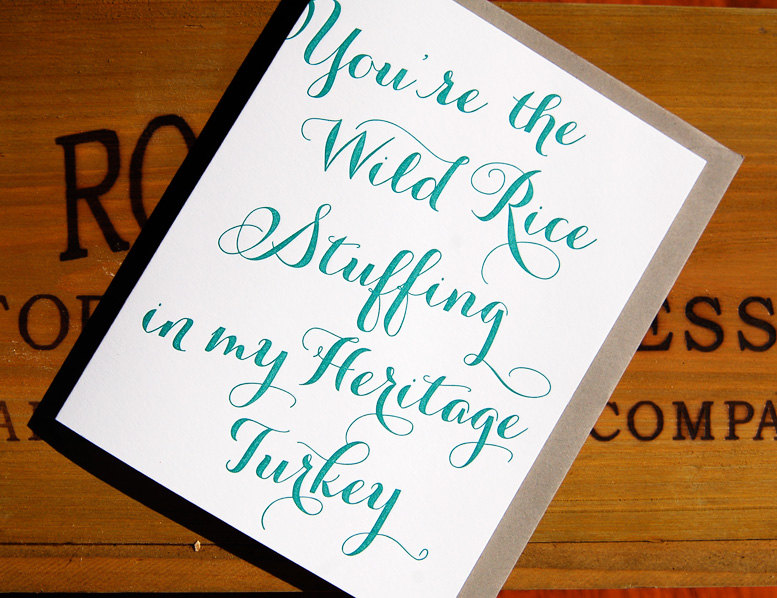 You're the
Wild Rice
Stuffing
in my Heritage
Turkey
COMPA